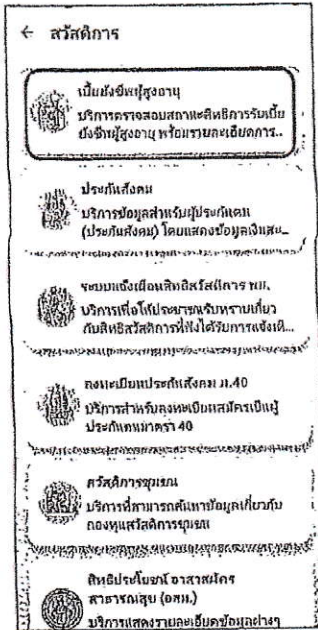 ← สวัสดิการ
เบี้ยยังชีพผู้สูงอายุ
บริการตรวจสอบสถานะสิทธิการรับเบี้ย
ยังชีพผู้สูงอายุ พร้อมรายละเอียดการ..
ประกันสังคม
บริการข้อมูลสำหรับผู้ประกันตน
(ประกันสังคม) โดยแสดงข้อมูลเงินสม...
ระบบแจ้งเตือนสิทธิสวัสดิการ พม.
บริการเพื่อให้ประชาชนรับทราบเกี่ยว
กับสิทธิสวัสดิการที่พึงได้รับการแจ้งเตื...
ลงทะเบียนประกันสังคม ม.40
บริการสำหรับลงทะเบียนสมัครเป็นผู้
ประกันตนมาตรา 40
สวัสดิการชุมชน
บริการที่สามารถค้นหาข้อมูลเกี่ยวกับ
กองทุนสวัสดิการชุมชน
สิทธิประโยชน์ อาสาสมัคร
สาธารณสุข (อสม.)
บริการแสดงรายละเอียดข้อมูลต่างๆ